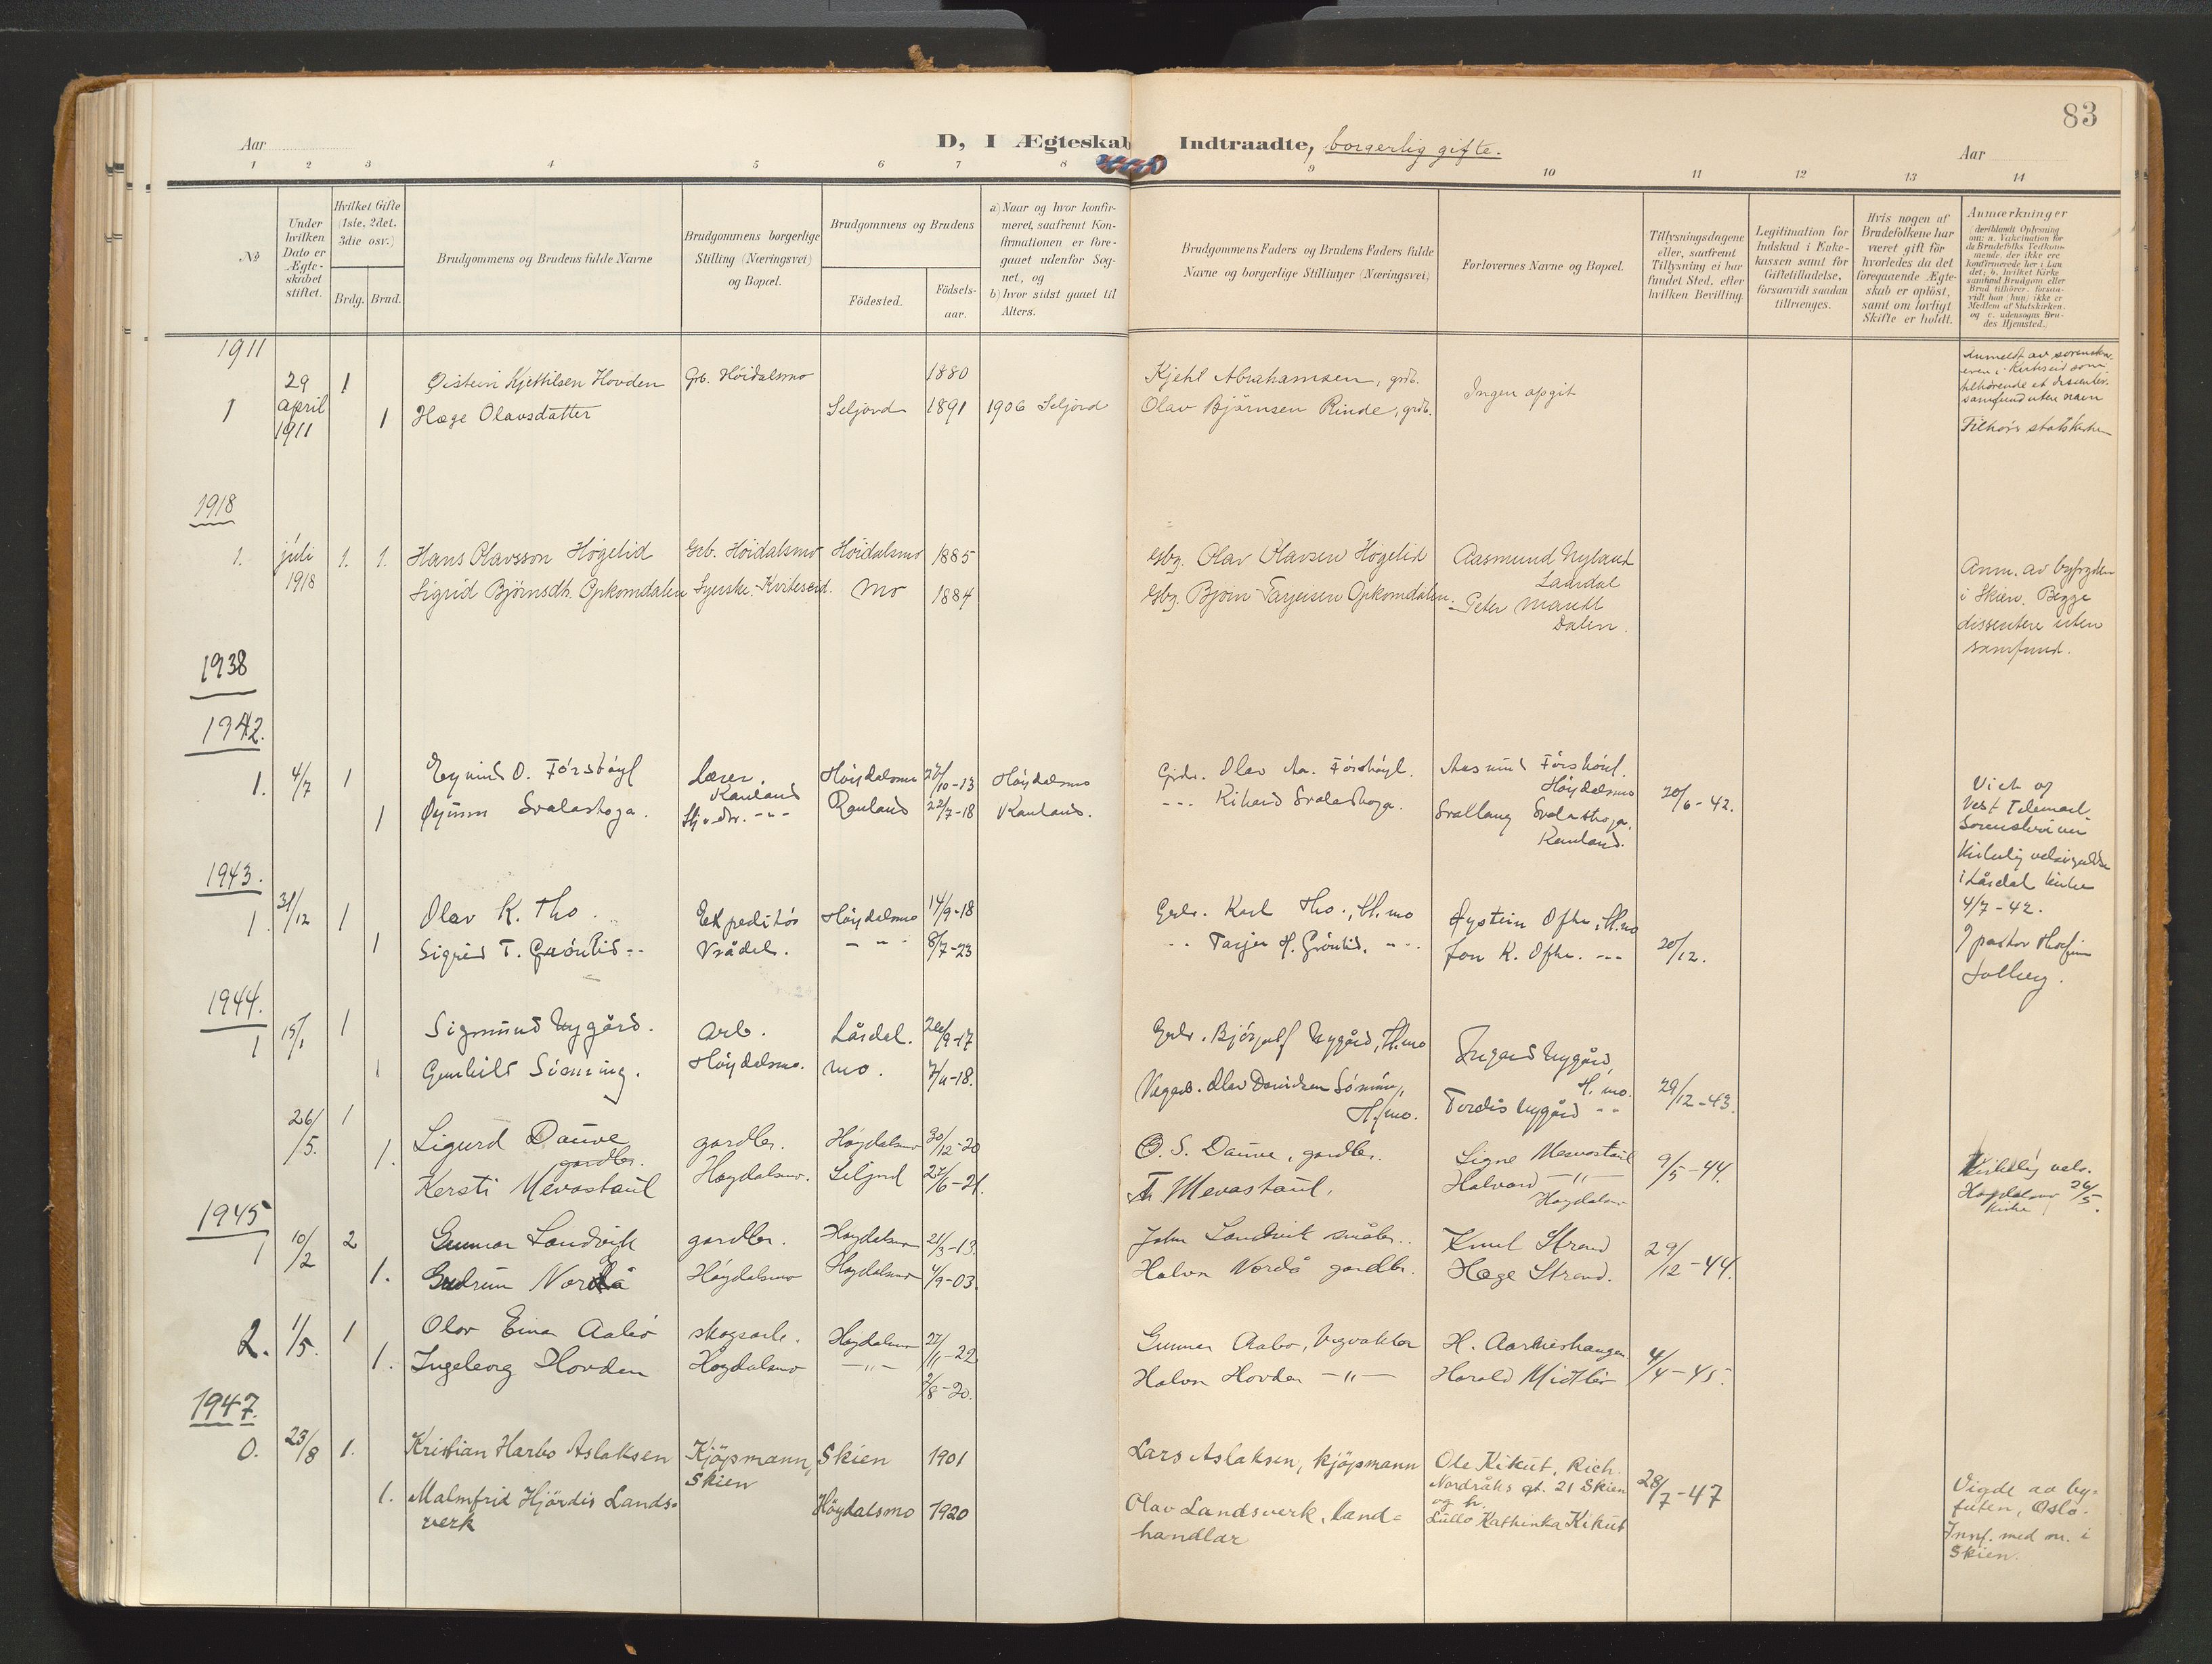 83
Aar
D, I Ægteskab Indtraadte, borgerlig gifte.
Aar
1 2 3 4 5 6 7 8 9 10 11 12 13 14
№
Under hvilken Dato er Ægteskabet stiftet.
Hvilket Gifte (1ste, 2det, 3die osv.)
Brdg. Brud.
Brudgommens og Brudens fulde Navne
Brudgommens borgerlige Stilling (Næringsvei) og Bopæl.
Brudgommens og Brudens
Födested.
Födsels-aar.
a) Naar og hvor konfirmeret, saafremt Konfirmationen er foregaaet udenfor Sognet, og
b) hvor sidst gaaet til Alters.
Brudgommens Faders og Brudens Faders fulde Navne og borgerlige Stillinger (Næringsvei)
Forlovernes Navne og Bopæl.
Tillysningsdagene eller, saafremt Tillysning ei har fundet Sted, efter hvilken Bevilling.
Legitimation for Indskud i Enkekassen samt for Giftetilladelse, forsaavidt saadan tiltrænges.
Hvis nogen af Brudefolkene har været gift för hvorledes da det foregaaende Ægteskab er oplöst, samt om lovligt Skifte er holdt.
Anmærkninger
deriblandt Oplysning om: a. Vakcination for de Brudefolks Vedkommende, der ikke ere konfirmerede her i Landet; b. hvilket Kirkesamfund Brudgom eller Brud tilhörer, forsaavidt han (hun) ikke er Medlem af Statskirken, og c. udensogns Brudes Hjemsted.
1911
29 1 Øistein Kjetilsen Hovden Grb. Höidalsmo 1880 Kjetil Abrahamsen, grdb. Ingen opgit
1 april 1911 1 Hæge Olavsdatter Seljord 1891 1906 Seljord Olav Björnsen Rinde, grdb.
Anmeldt av sorenskriveren i Kviteseid som tilhörende et dissentersamfund uten navn
Tilhörer statskirken
1918
1. juli 1918 1. 1. Hans Olavsson Høgelid Grb. Höidalsmo Höidalsmo 1885 Gbr. Olav Olavsen Högelid Aasmund Nyland Laardal
Sigrid Björnsdtr. Opkomdalen Syerske. Kviteseid. Mo 1884 Gbr. Bjorn Tarjeisen Opkomdalen. Peter Mandt Dalen.
Anm. av byfogden i Skien. Begge dissentere uten samfund.
1938
1942.
1. 4/7 1 Eyvind O. Försthöyl Lærer. Rauland Höydalsmo 27/10-13 Höydalsmo Grdr. Olav Aa. Försthöyl. Aasmund Försthöyl. Höydalsmo
1 Svalastoga. Rauland 22/7-18 Rauland. Rikard Svalastoga. Svallaug Svalastoga, Rauland. 20/6-42.
Vigd av Vest Telemark Sorenskriver
Kirkelig velsignelse i Lårdal kirke 4/7-42.
1943.
1. 31/12 1 Olav K. Tho. Ekspeditör Höydalsmo 14/9-18 Grdr. Karl Tho., H.mo Øystein Ofte, H.mo
1 Sigrid T. Gröntlid Vrådal. 8/7-23 Tarjei H. Gröntlid. Jon K. Ofte. 20/12.
1944.
1 15/1 1 Sigmund Nygård. Arb. Lårdal. 24/9-17 Grdr. Björgulf Nygård, H.mo Ingerd Nygård, H.mo.
1 Gunhild Sönning. Höydalsmo. Mo. 7/11-18. Olav Davidsen Sönning, H.mo. Tordis Nygård 29/12-43.
26/5. 1 Sigurd Dauve gardbr. Höydalsmo 30/12-20 O. S. Dauve, gardbr. Signe Mevastaul
1. Kersti Mevastaul Høydalsmo. Seljord 27/6-21. T. Mevastaul. Halvard —"— Høydalsmo 9/5-44.
Kirkelig vels. Høydalsmo kirke 26/5.
1945
1 10/2 2 Gunnar Landvik gardbr. Høydalsmo 21/3-13. John Landvik småbr.. Knut Strand 29/12-44.
1. Gudrun Nordå Høydalsmo Høydalsmo 4/9-03. Halvor Nordå gardbr. Hæge Strand.
2. 1/5. 1 Olav Einar Aabö skogsarb. Høydalsmo 27/11-22 Gunnar Aabø, Vegvakter H. Aarneshaugen. 4/4-45.
1. Ingeborg Hovden Høydalsmo —"— 2/8-20. Halvor Hovden —"— Harald Midtbö
1947.
0. 23/8 1. Kristian Harbo Aslaksen Kjöpmann, Skien Skien 1901 Lars Aslaksen, kjöpmann Ole Kikut, Rich. Nordråks gt. 21 Skien og fr. Lullo Kathinka Kikut 28/7-47
1. Malmfrid Hjördis Landsverk Höydalsmo 1920 Olav Landsverk, landhandlar
Vigde av byfuten, Oslo. Innf. med nr. i Skien.